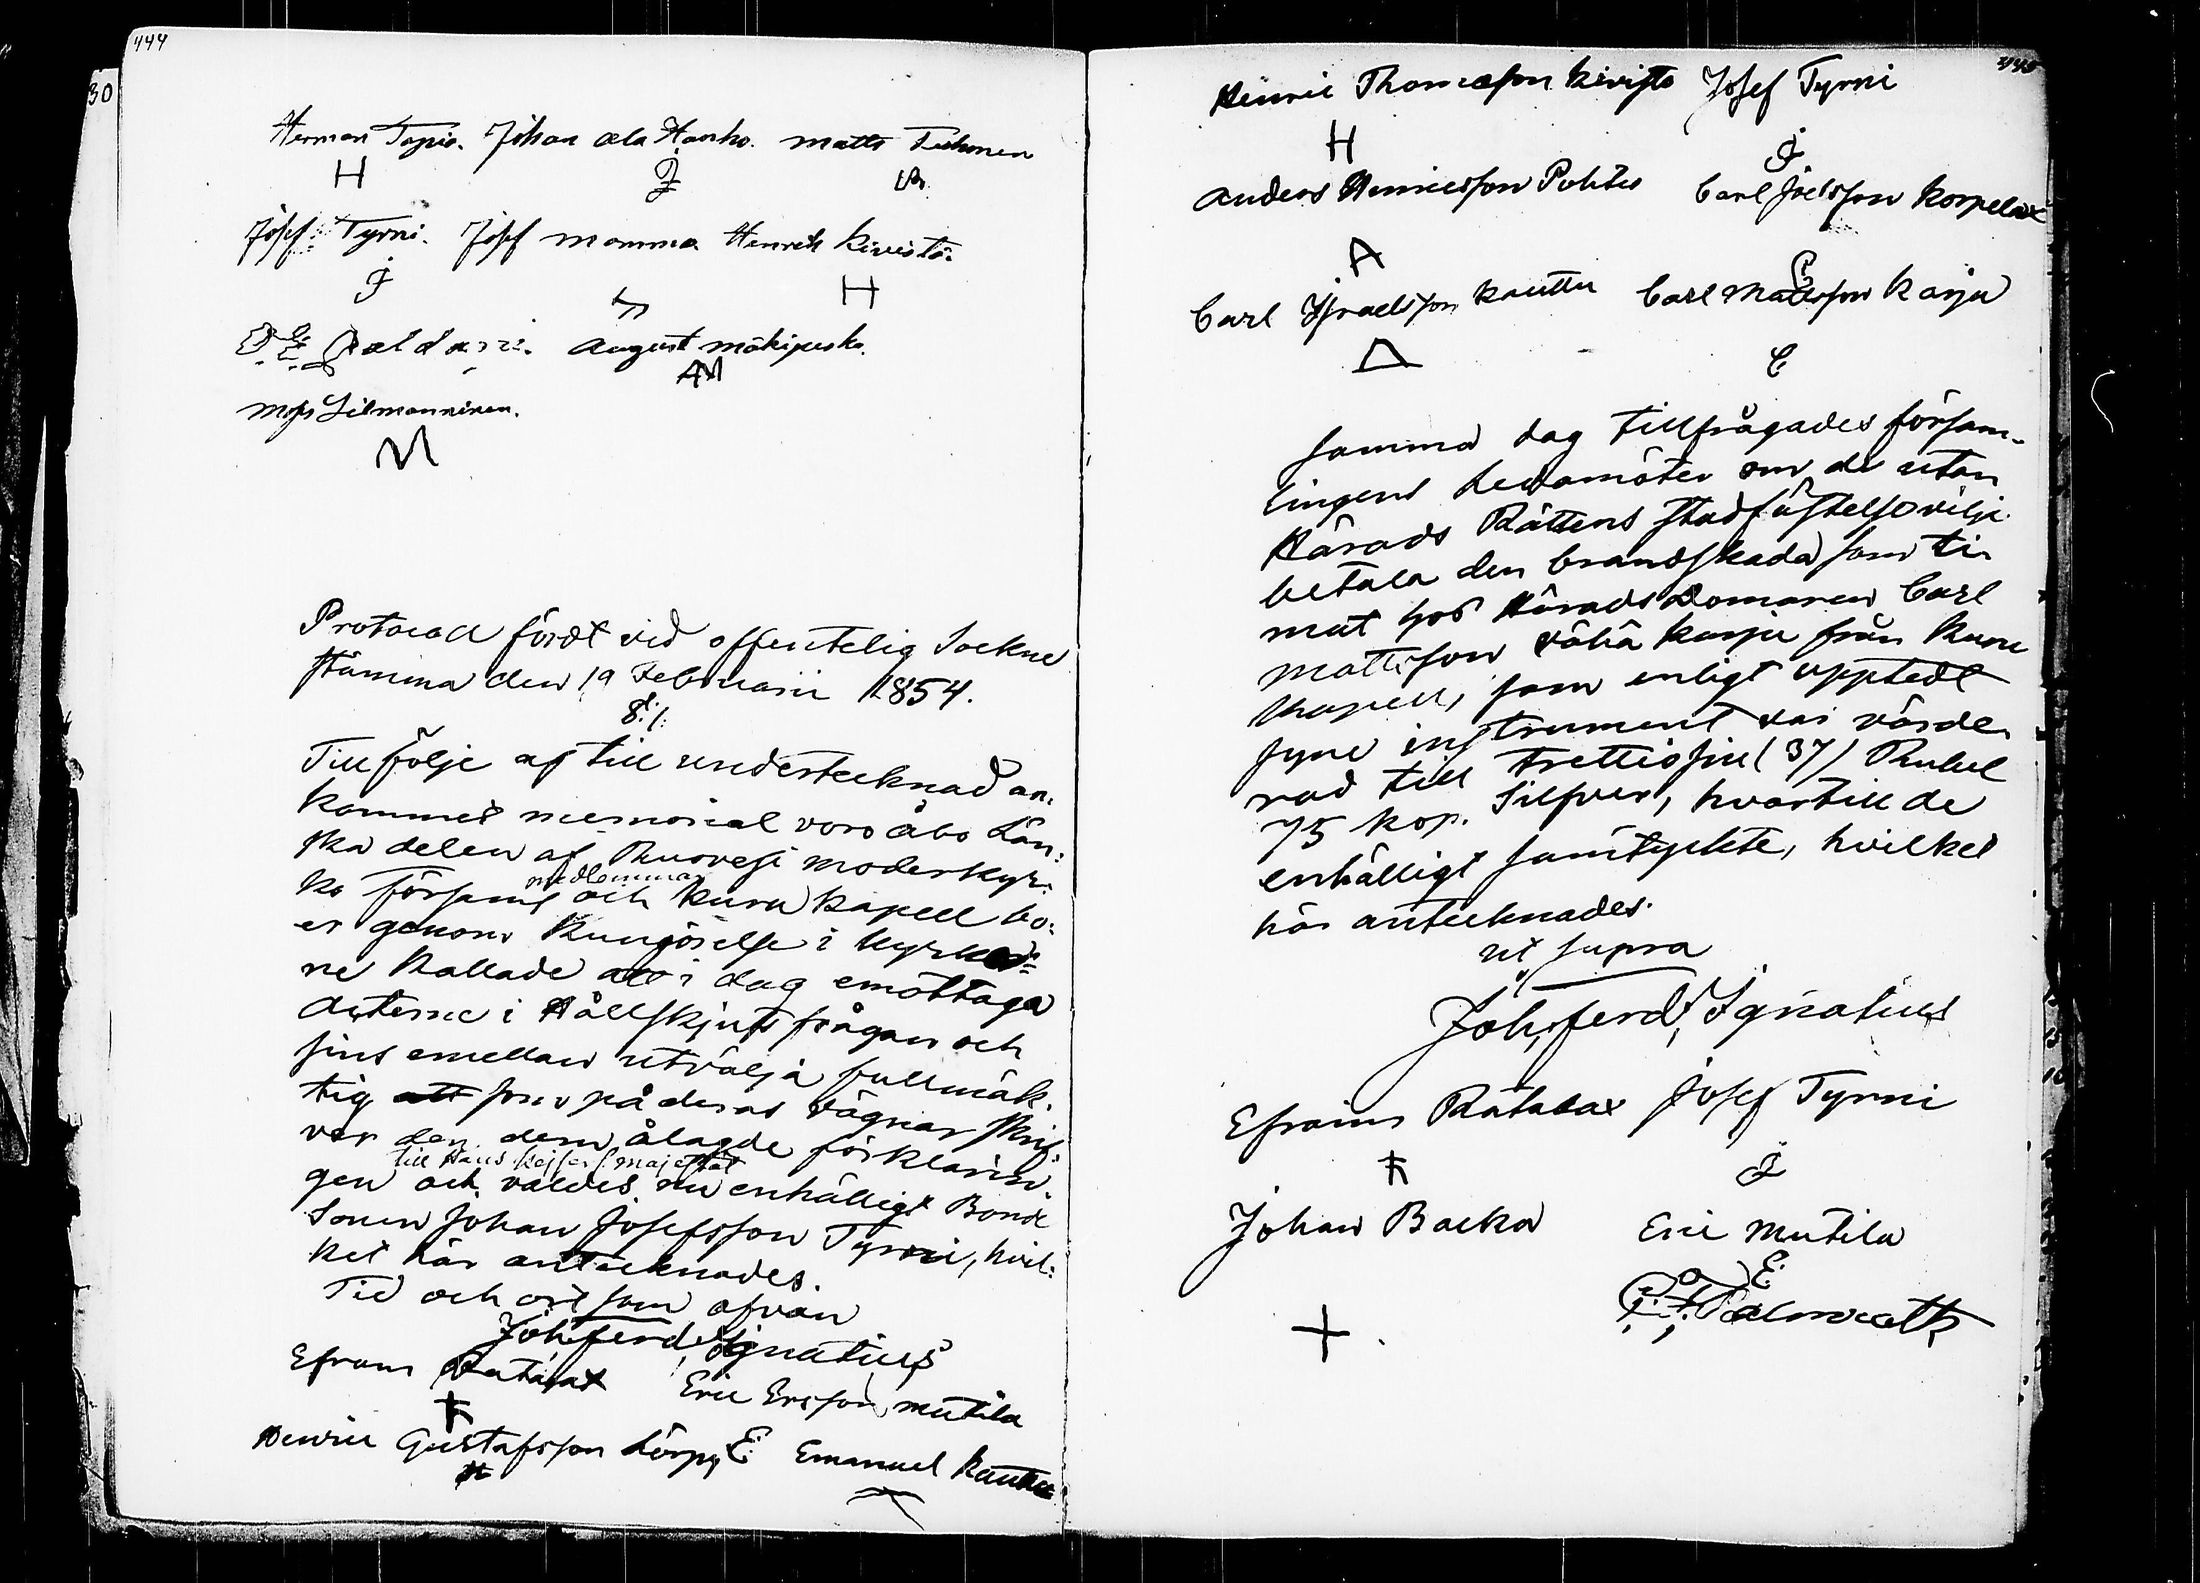 444
30
Herman Tapio. Johan ala Hanho. Matts Tiihonen
H J
Josef Tyrni. Josef Mamma Henrik Kivistö.
J H
August Mäkipeska.
AM
Mats Silmänninen.
M
Protocoll fördt vid offentelig Sockne
stämma den 19 Februarii 1854.
S:
Till följe af till undertecknad an:
kommet memorial voro Åbo Län:
ska delen af Ruovesi moderkyr:
medlemmar
ko församl och Kuru Kapell bo:
er genom Kungörelse i kyrkor:
ne kallade att i dag emottaga
acterne i Hållskjuts frågan och
sins emellan utvälja fullmäk:
tig att som på deras vägnar skrif:
ver den dem ålagde förklarin:
till Hans Kejserl. Majestät
gen och valdes nu enhälligt Bonde
Sonen Johan Josefsson Tyrni, hvil:
ket här antecknades.
Tid och ort som ofvan
Joh. Ferd. Ignatius
Efraim Ratalax Eric Ersson Mutila
Henric Gustafsson Lörpy E. Emanuel Kauttu
H
445
Henric Thomasson Kivistö Josef Tyrni
H J
Anders Henricsson Pohto Carl Joelsson Korpelax
A C
Carl Israelsson Kauttu Carl Mattsson Karju
C
Samma dag tillfrågades försam-
lingens ledamöter om de utan
Härads Rättens stadfästelse vilja
betala den brandskada som ti-
mat hos HäradsDomaren Carl
Mattsson Vähä Karju från Kuru
Kapell, som enligt upptedt
syne instrument var värde-
rad till trettiosju (37) Rubel
75 kop. Silfver, hvartill de
enhälligt samtyckte, hvilket
här antecknades.
ut supra
Joh. Ferd. Ignatius
Efraim Ratalax Josef Tyrni
J
Johan Backa Eric Mutila
+ E.
Palmroth